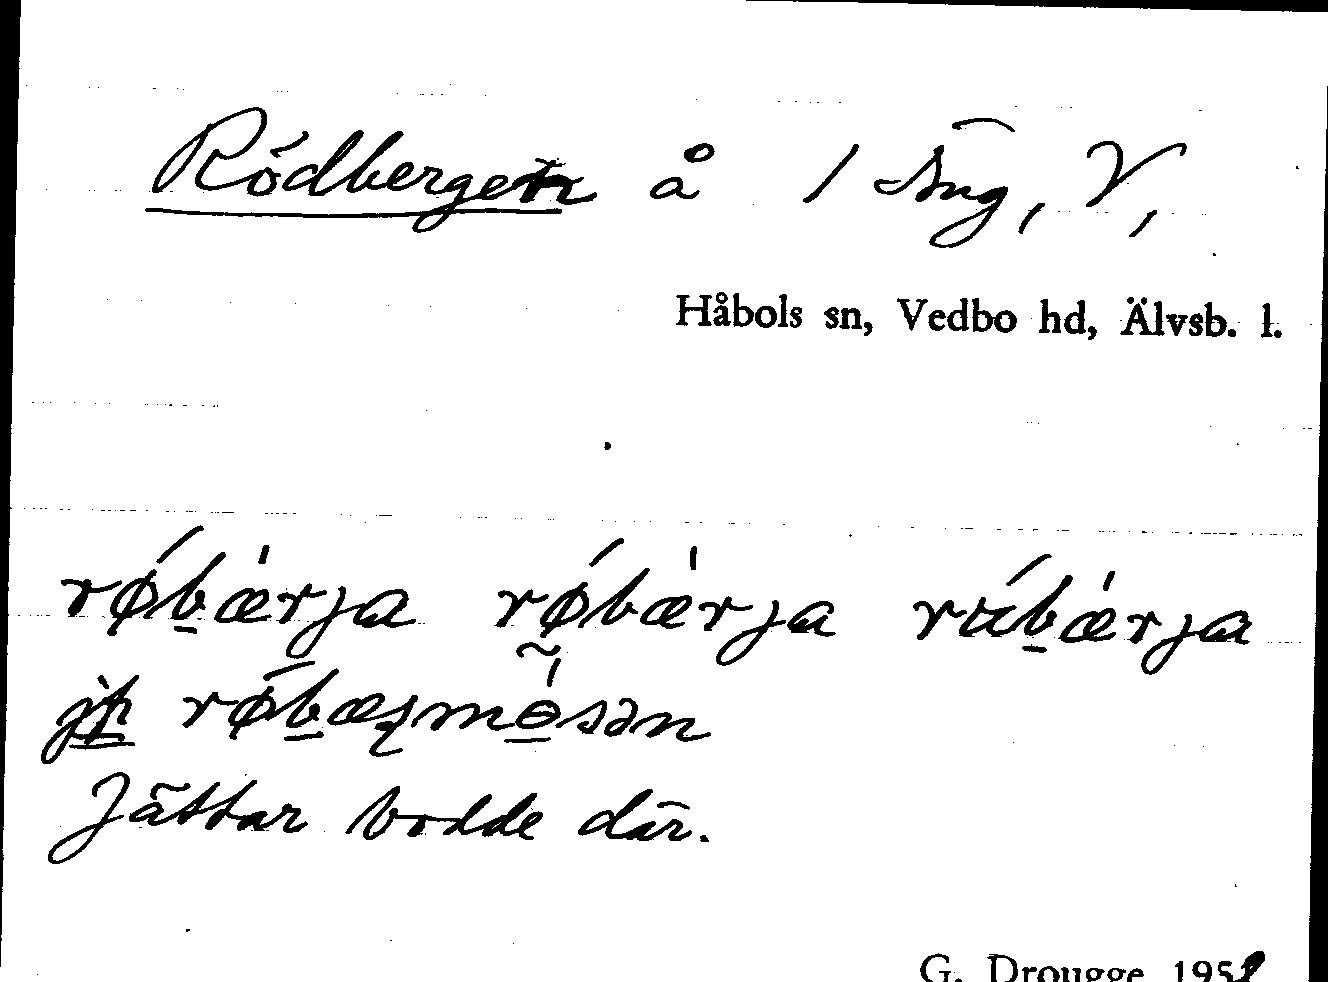 Rödbergen å 1 Äng, V,
Håbols sn, Vedbo hd, Älvsb. l.
rǿbæ̍rja rǿbæ̍rja rúbæ̍rja
rǿbæʂmɵ̍sən
Jättar bodde där.
G. Drougge 195